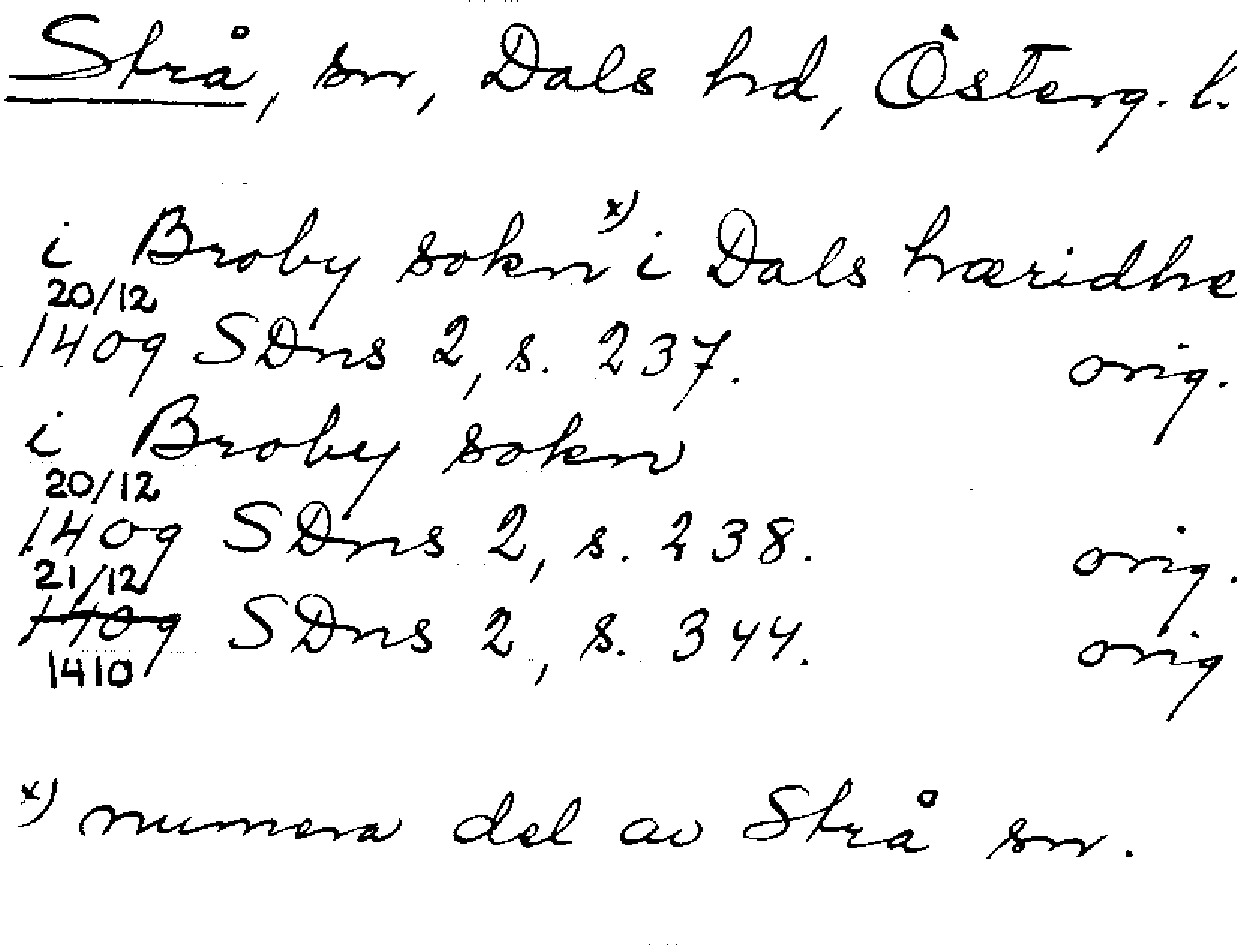 Strå, sn, Dals hd, Österg. l.
i Broby sokn x) i Dals hæridhe
20/12
1409 SDns 2, s. 237. orig.
i Broby sokn
20/12
1409 SDns 2, s. 238. orig.
21/12
1409 SDns 2, s. 344. orig
1410
x) numera del av Strå sn.